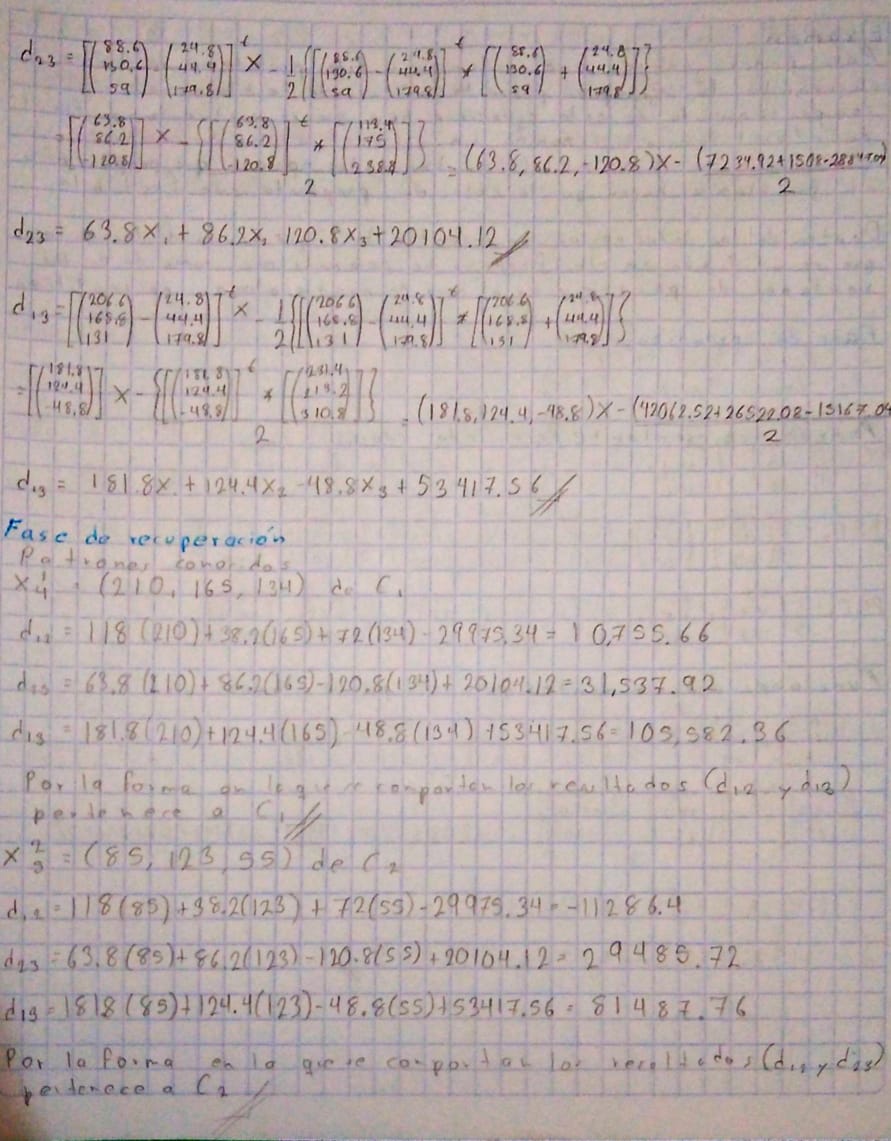 d₂₃ = [(88.6 130.6 59) - (24.8 44.4 179.8)]ᵗ X - 1/2 {[(88.6 130.6 59) - (24.8 44.4 179.8)]ᵗ * [(88.6 130.6 59) + (24.8 44.4 179.8)]}
= [(63.8 86.2 -120.8)] X - {[(63.8 86.2 -120.8)]ᵗ * [(113.4 175 238.8)]} / 2 = (63.8, 86.2, -120.8)X - (7234.92+1508-28847.04) / 2
d₂₃ = 63.8X₁ + 86.2X₂ 120.8X₃ + 20104.12
d₁₃ = [(206.6 168.8 131) - (24.8 44.4 179.8)]ᵗ X - 1/2 {[(206.6 168.8 131) - (24.8 44.4 179.8)]ᵗ * [(206.6 168.8 131) + (24.8 44.4 179.8)]}
= [(181.8 124.4 -48.8)] X - {[(181.8 124.4 -48.8)]ᵗ * [(231.4 213.2 310.8)]} / 2 = (181.8, 124.4, -48.8)X - (42068.52+26522.08-15167.04 / 2
d₁₃ = 181.8X₁ + 124.4X₂ - 48.8X₃ + 53417.56
Fase de recuperación
Patrones conocidos
X¹₄ = (210, 165, 134) de C₁
d₁₂ = 118(210)+38.2(165)+72(134)-29975.34 = 10,755.66
d₂₃ = 63.8(210)+86.2(165)-120.8(134)+20104.12 = 31,537.92
d₁₃ = 181.8(210)+124.4(165)-48.8(134)+53417.56 = 105,582.36
Por la forma en la que se comportan los resultados (d₁₂ y d₁₃)
pertenece a C₁
X²₅ = (85, 123, 55) de C₂
d₁₂ = 118(85)+38.2(123)+72(55)-29975.34 = -11286.4
d₂₃ = 63.8(85)+86.2(123)-120.8(55)+20104.12 = 29485.72
d₁₃ = 181.8(85)+124.4(123)-48.8(55)+53417.56 = 81487.76
Por la forma en la que se comportan los resultados (d₁₂ y d₂₃)
pertenece a C₂